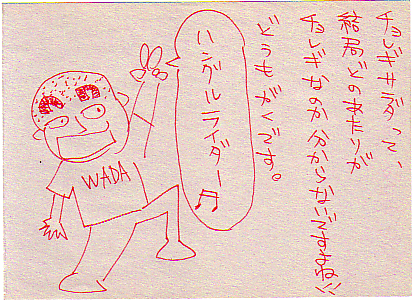 チョレギサラダって、
結局どのあたりが
チョレギなのか分からないですよね!!
どうもがくです。
ハングルライダー♫
WADA